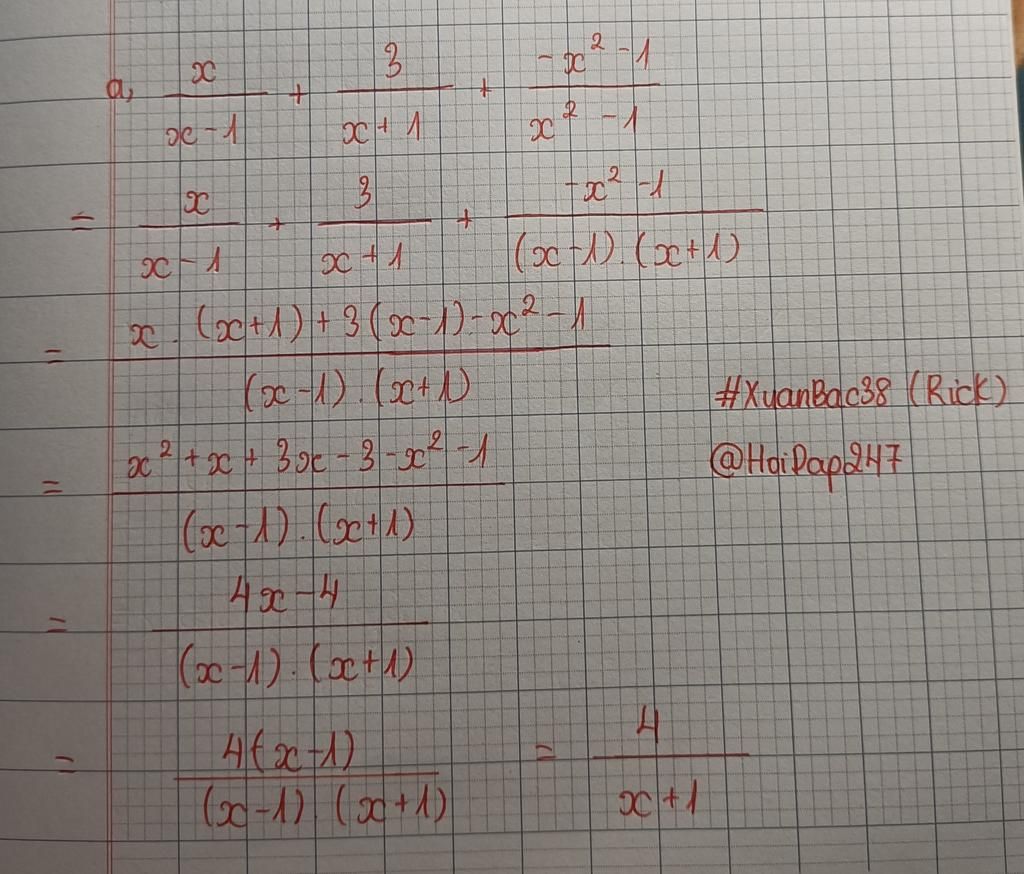 a, x/(x-1) + 3/(x+1) + (-x²-1)/(x²-1)
= x/(x-1) + 3/(x+1) + (-x²-1)/((x-1).(x+1))
= (x.(x+1)+3(x-1)-x²-1)/((x-1).(x+1))
#XuanBac38 (Rick)
= (x²+x+3x-3-x²-1)/((x-1).(x+1))
@HoiDap247
= (4x-4)/((x-1).(x+1))
= (4(x-1))/((x-1)(x+1)) = 4/(x+1)